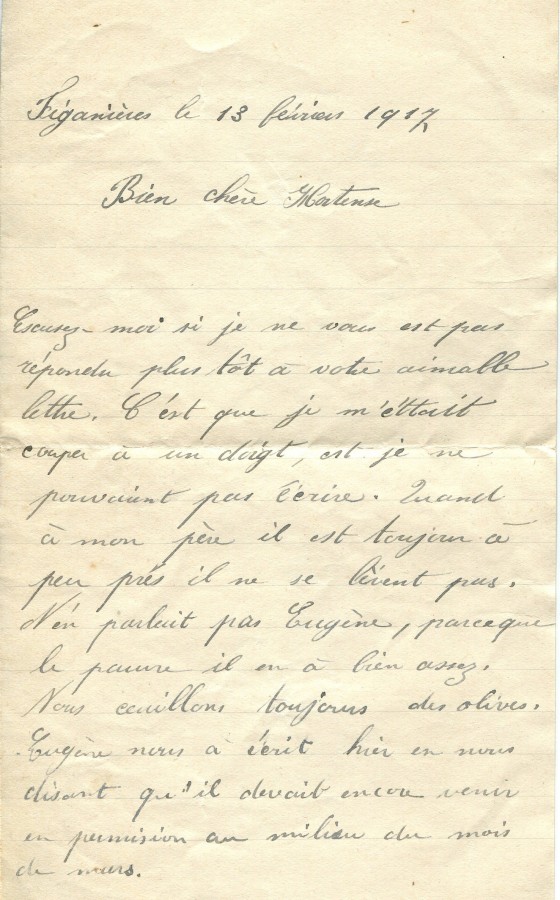 Figanières le 13 févriers 1917
Bien chère Hortense
Escusez-moi si je ne vous est pas
répondu plus tôt à votre aimable
lettre. C'est que je m'éttait
couper à un doigt, est je ne
pouvaient pas écrire. Quand
à mon père il est toujour à
peu prés il ne se lêvent pas.
N'en parlait pas Eugène, parceque
le pauvre il en à bien assez.
Nous ceuillons toujours des olives.
Eugène nous à écrit hier en nous
disant qu'il devait encore venir
en permision au milieu du mois
de mars.